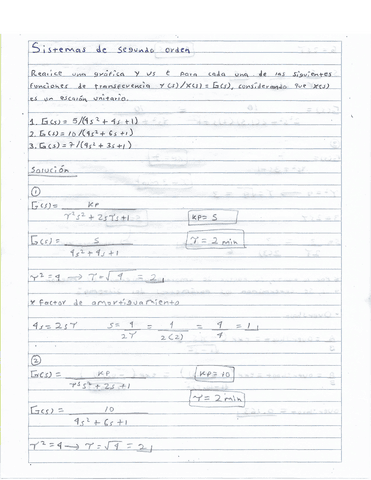 Sistemas de segundo orden
Realice una gráfica Y vs t para cada una de las siguientes
funciones de transferencia Y(s)/X(s) = G(s), considerando que X(s)
es un escalón unitario.
1. G(s) = 5/(4s² + 4s + 1)
2. G(s) = 10/(4s² + 6s + 1)
3. G(s) = 7/(4s² + 3s + 1)
Solución
①
G(s) = KP / τ²s² + 2ςτs + 1
KP = 5
G(s) = 5 / 4s² + 4s + 1
τ = 2 min
τ² = 4 → τ = √4 = 2
* Factor de amortiguamiento
4s = 2ςτ ς = 4/2τ = 4/2(2) = 4/4 = 1
②
G(s) = KP / τ²s² + 2s + 1
KP = 10
τ = 2 min
G(s) = 10 / 4s² + 6s + 1
τ² = 4 → τ = √4 = 2